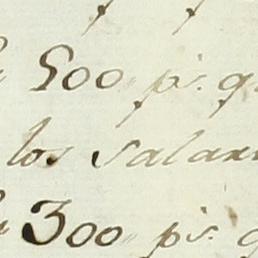 500 p.s
los salar
300 p.s